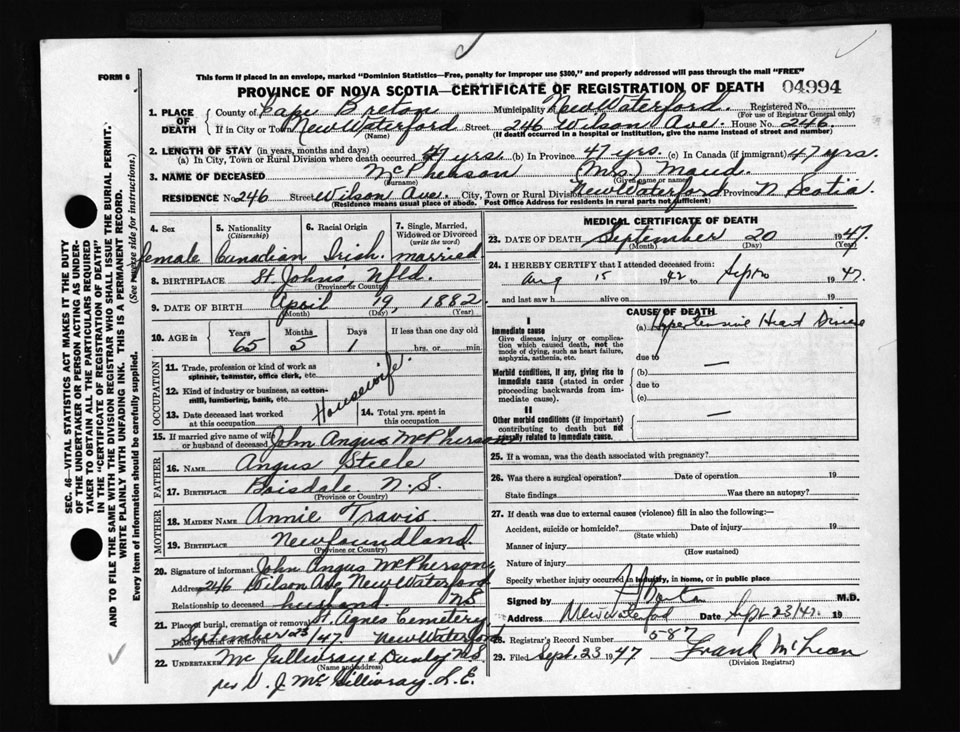 FORM 6
This form if placed in an envelope, marked "Dominion Statistics—Free, penalty for improper use $300," and properly addressed will pass through the mail "FREE"
PROVINCE OF NOVA SCOTIA—CERTIFICATE OF REGISTRATION OF DEATH 04994
1. PLACE OF DEATH
County of Cape Breton Municipality New Waterford. Registered No.
(For use of Registrar General only)
If in City or Town New Waterford Street 246 Wilson Ave. House No. 246.
(Name) (If death occurred in a hospital or institution, give the name instead of street and number)
2. LENGTH OF STAY (in years, months and days)
(a) In City, Town or Rural Division where death occurred 47 yrs (b) In Province 47 yrs. (c) In Canada (if immigrant) 47 yrs.
3. NAME OF DECEASED McPherson (Mrs) Maud.
(Surname) (Given name or names)
RESIDENCE No. 246 Street Wilson Ave. City, Town or Rural Division New Waterford Province N. Scotia.
(Residence means usual place of abode. Post Office Address for residents in rural parts not sufficient)
4. Sex
5. Nationality (Citizenship)
6. Racial Origin
7. Single, Married, Widowed or Divorced (write the word)
female Canadian Irish. married
8. BIRTHPLACE St. Johns Nfld.
(Province or Country)
9. DATE OF BIRTH April 19, 1882.
(Month) (Day) (Year)
10. AGE in Years Months Days If less than one day old
65 5 1 hrs. or min.
OCCUPATION
11. Trade, profession or kind of work as spinner, teamster, office clerk, etc.
12. Kind of industry or business, as cotton-mill, lumbering, bank, etc.
Housewife.
13. Date deceased last worked at this occupation
14. Total yrs. spent in this occupation
15. If married give name of wife or husband of deceased John Angus McPherson
FATHER
16. NAME Angus Steele
17. BIRTHPLACE Boisdale. N.S.
(Province or Country)
MOTHER
18. MAIDEN NAME Annie Travis.
19. BIRTHPLACE Newfoundland.
(Province or Country)
20. Signature of informant John Angus McPherson
Address 246 Wilson Ave New Waterford
Relationship to deceased husband. NS
21. Place of burial, cremation or removal St. Agnes Cemetery
Date of burial or removal September 23/47 New Waterford
22. UNDERTAKER Mc Gillivray & Dunlop NS
(Name and address)
per W. J. McGillivray. L.E.
MEDICAL CERTIFICATE OF DEATH
23. DATE OF DEATH September 20 1947.
(Month) (Day) (Year)
24. I HEREBY CERTIFY that I attended deceased from:
Aug 15 1942 to Sept 20 1947.
and last saw h alive on 19
CAUSE OF DEATH
I
Immediate cause
Give disease, injury or complication which caused death, not the mode of dying, such as heart failure, asphyxia, asthenia, etc.
(a) Hypertensive Heart Disease
due to
Morbid conditions, if any, giving rise to immediate cause (stated in order proceeding backwards from immediate cause).
(b) —
due to
(c)
II
Other morbid conditions (if important) contributing to death but not causally related to immediate cause.
—
25. If a woman, was the death associated with pregnancy?
26. Was there a surgical operation? Date of operation 19
State findings Was there an autopsy?
27. If death was due to external causes (violence) fill in also the following:—
Accident, suicide or homicide? Date of injury 19
(State which)
Manner of injury
(How sustained)
Nature of injury
Specify whether injury occurred in industry, in home, or in public place
Signed by M.D.
Address New Waterford Date Sept 23/47. 19
28. Registrar's Record Number 587
29. Filed Sept. 23 1947 Frank McLean
(Division Registrar)
SEC. 46—VITAL STATISTICS ACT MAKES IT THE DUTY OF THE UNDERTAKER OR PERSON ACTING AS UNDERTAKER TO OBTAIN ALL THE PARTICULARS REQUIRED IN THE "CERTIFICATE OF REGISTRATION OF DEATH"
AND TO FILE THE SAME WITH THE DIVISION REGISTRAR WHO SHALL ISSUE THE BURIAL PERMIT.
WRITE PLAINLY WITH UNFADING INK. THIS IS A PERMANENT RECORD.
Every item of information should be carefully supplied. (See reverse side for instructions.)